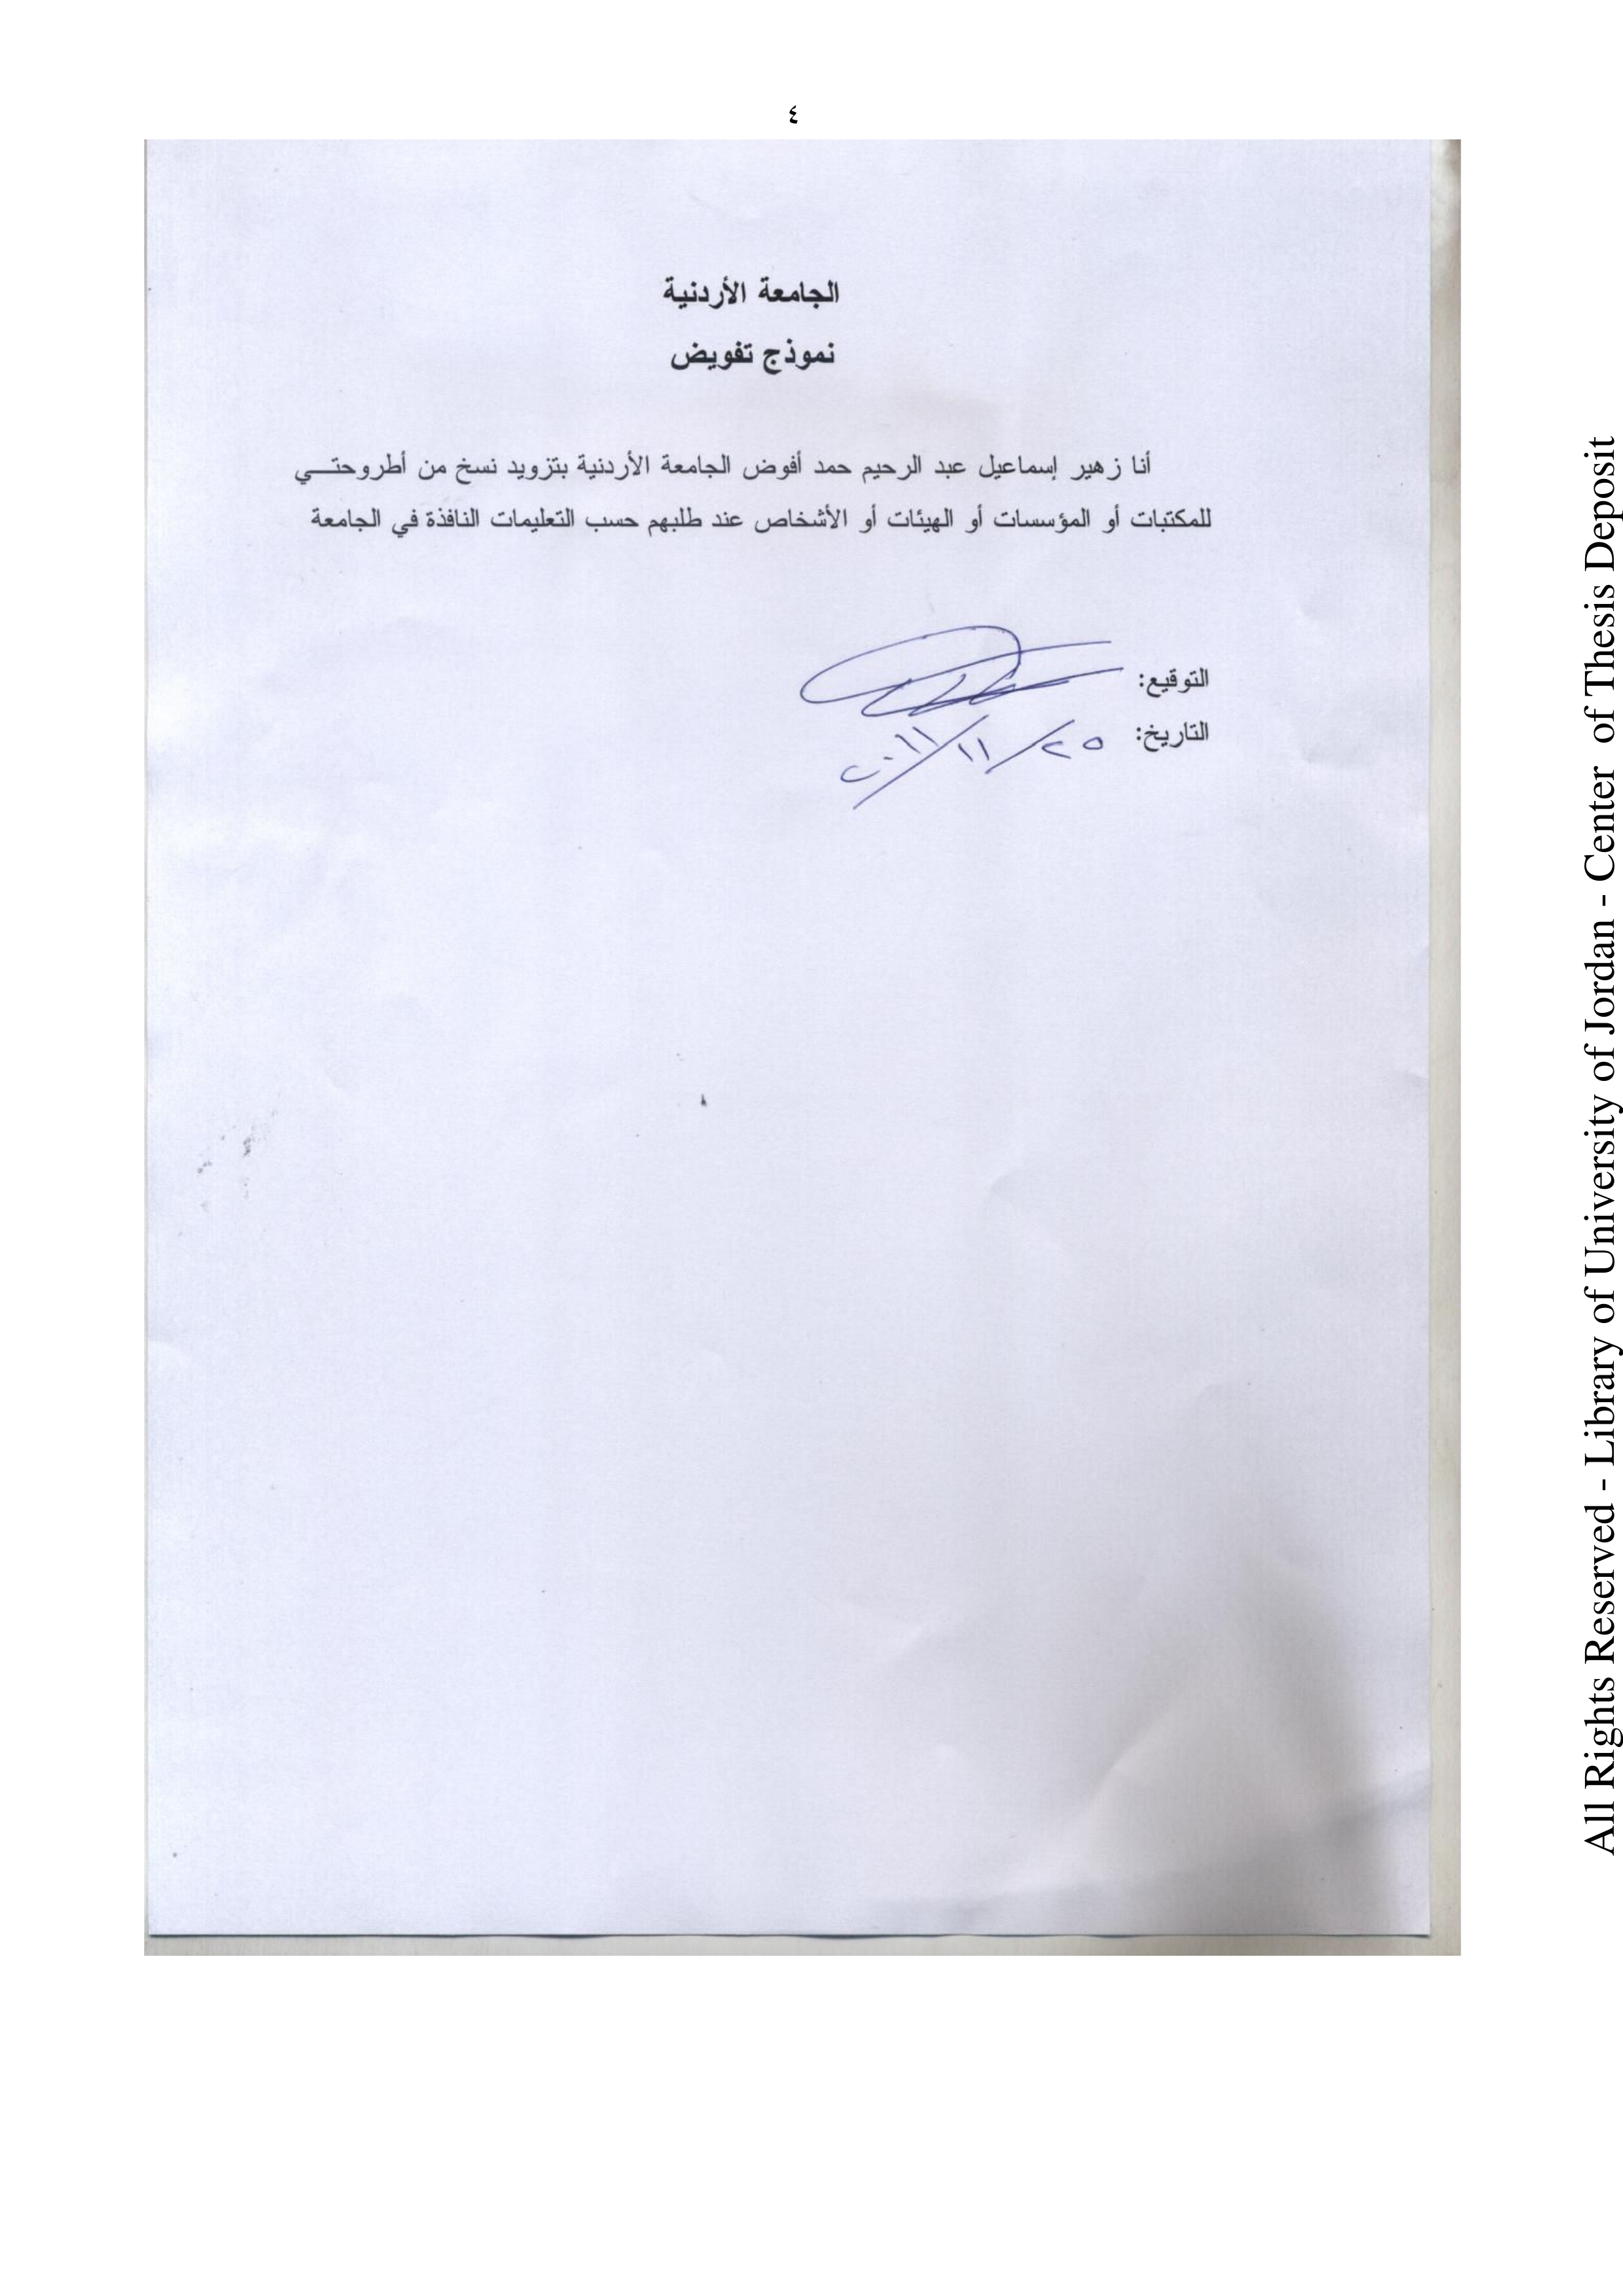 ٤
الجامعة الأردنية
نموذج تفويض
أنا زهير إسماعيل عبد الرحيم حمد أفوض الجامعة الأردنية بتزويد نسخ من أطروحتـــي
للمكتبات أو المؤسسات أو الهيئات أو الأشخاص عند طلبهم حسب التعليمات النافذة في الجامعة
التوقيع:
التاريخ: ٢٥/١١/٢٠١١
All Rights Reserved - Library of University of Jordan - Center of Thesis Deposit